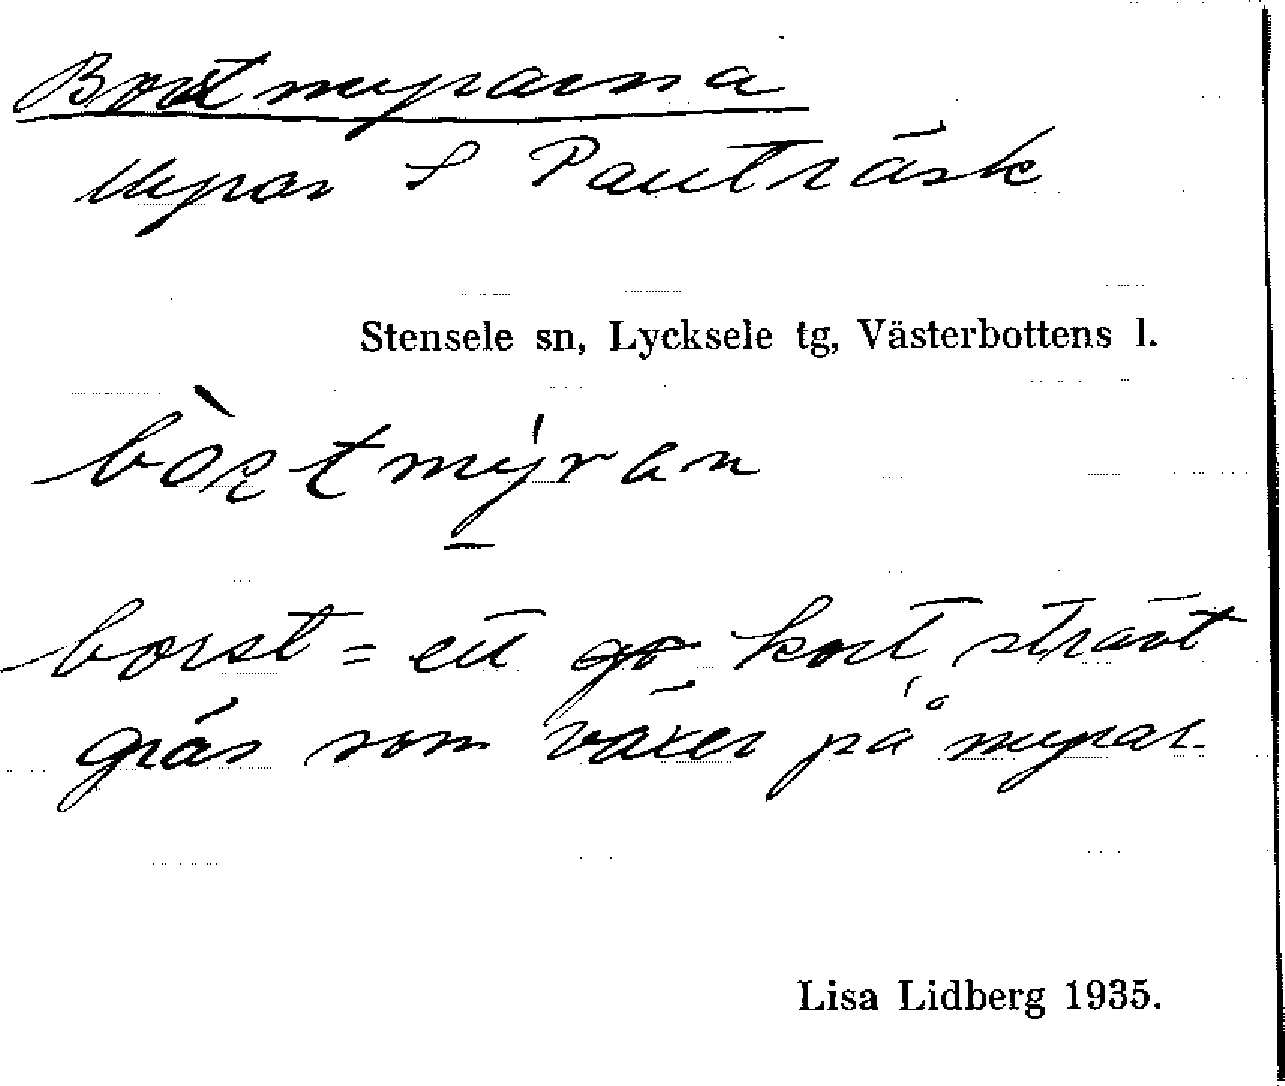 Borstmyrarna
Myrar S Pauträsk
Stensele sn, Lycksele tg, Västerbottens l.
borst = ett kort strävt
gräs som växer på myrar.
Lisa Lidberg 1935.